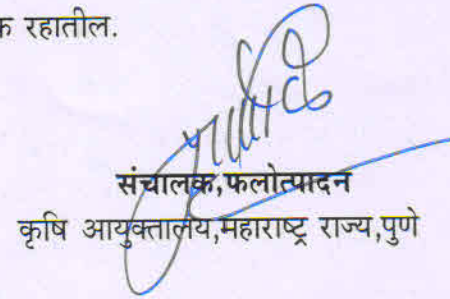 रहातील.
संचालक,फलोत्पादन
कृषि आयुक्तालय,महाराष्ट्र राज्य,पुणे